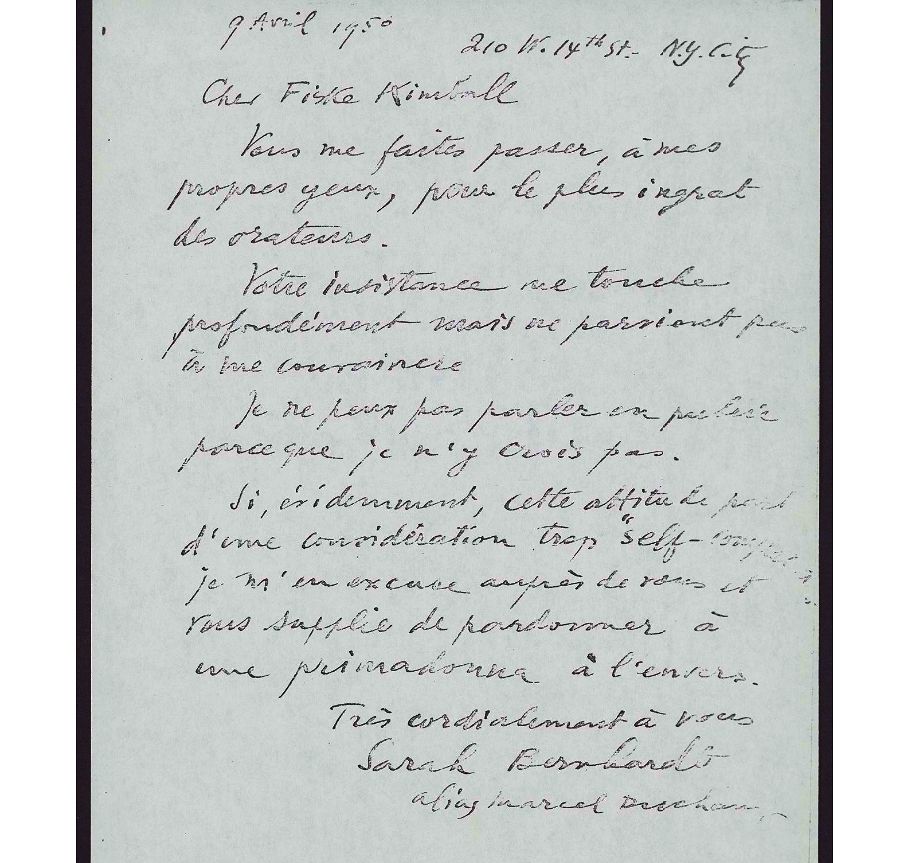 9 Avril 1950
210 W. 14th St. N.Y. City
Cher Fiske Kimball
Vous me faites passer, à mes
propres yeux, pour le plus ingrat
des orateurs.
Votre insistance me touche
profondément mais ne parvient pas
à me convaincre
Je ne peux pas parler en public
parce que je n'y crois pas.
Si, évidemment, cette attitude part
d'une considération trop "self-
je m'en excuse auprès de vous et
vous supplie de pardonner à
une primadonna à l'envers.
Très cordialement à vous
Sarah Bernhardt
alias Marcel Duchamp